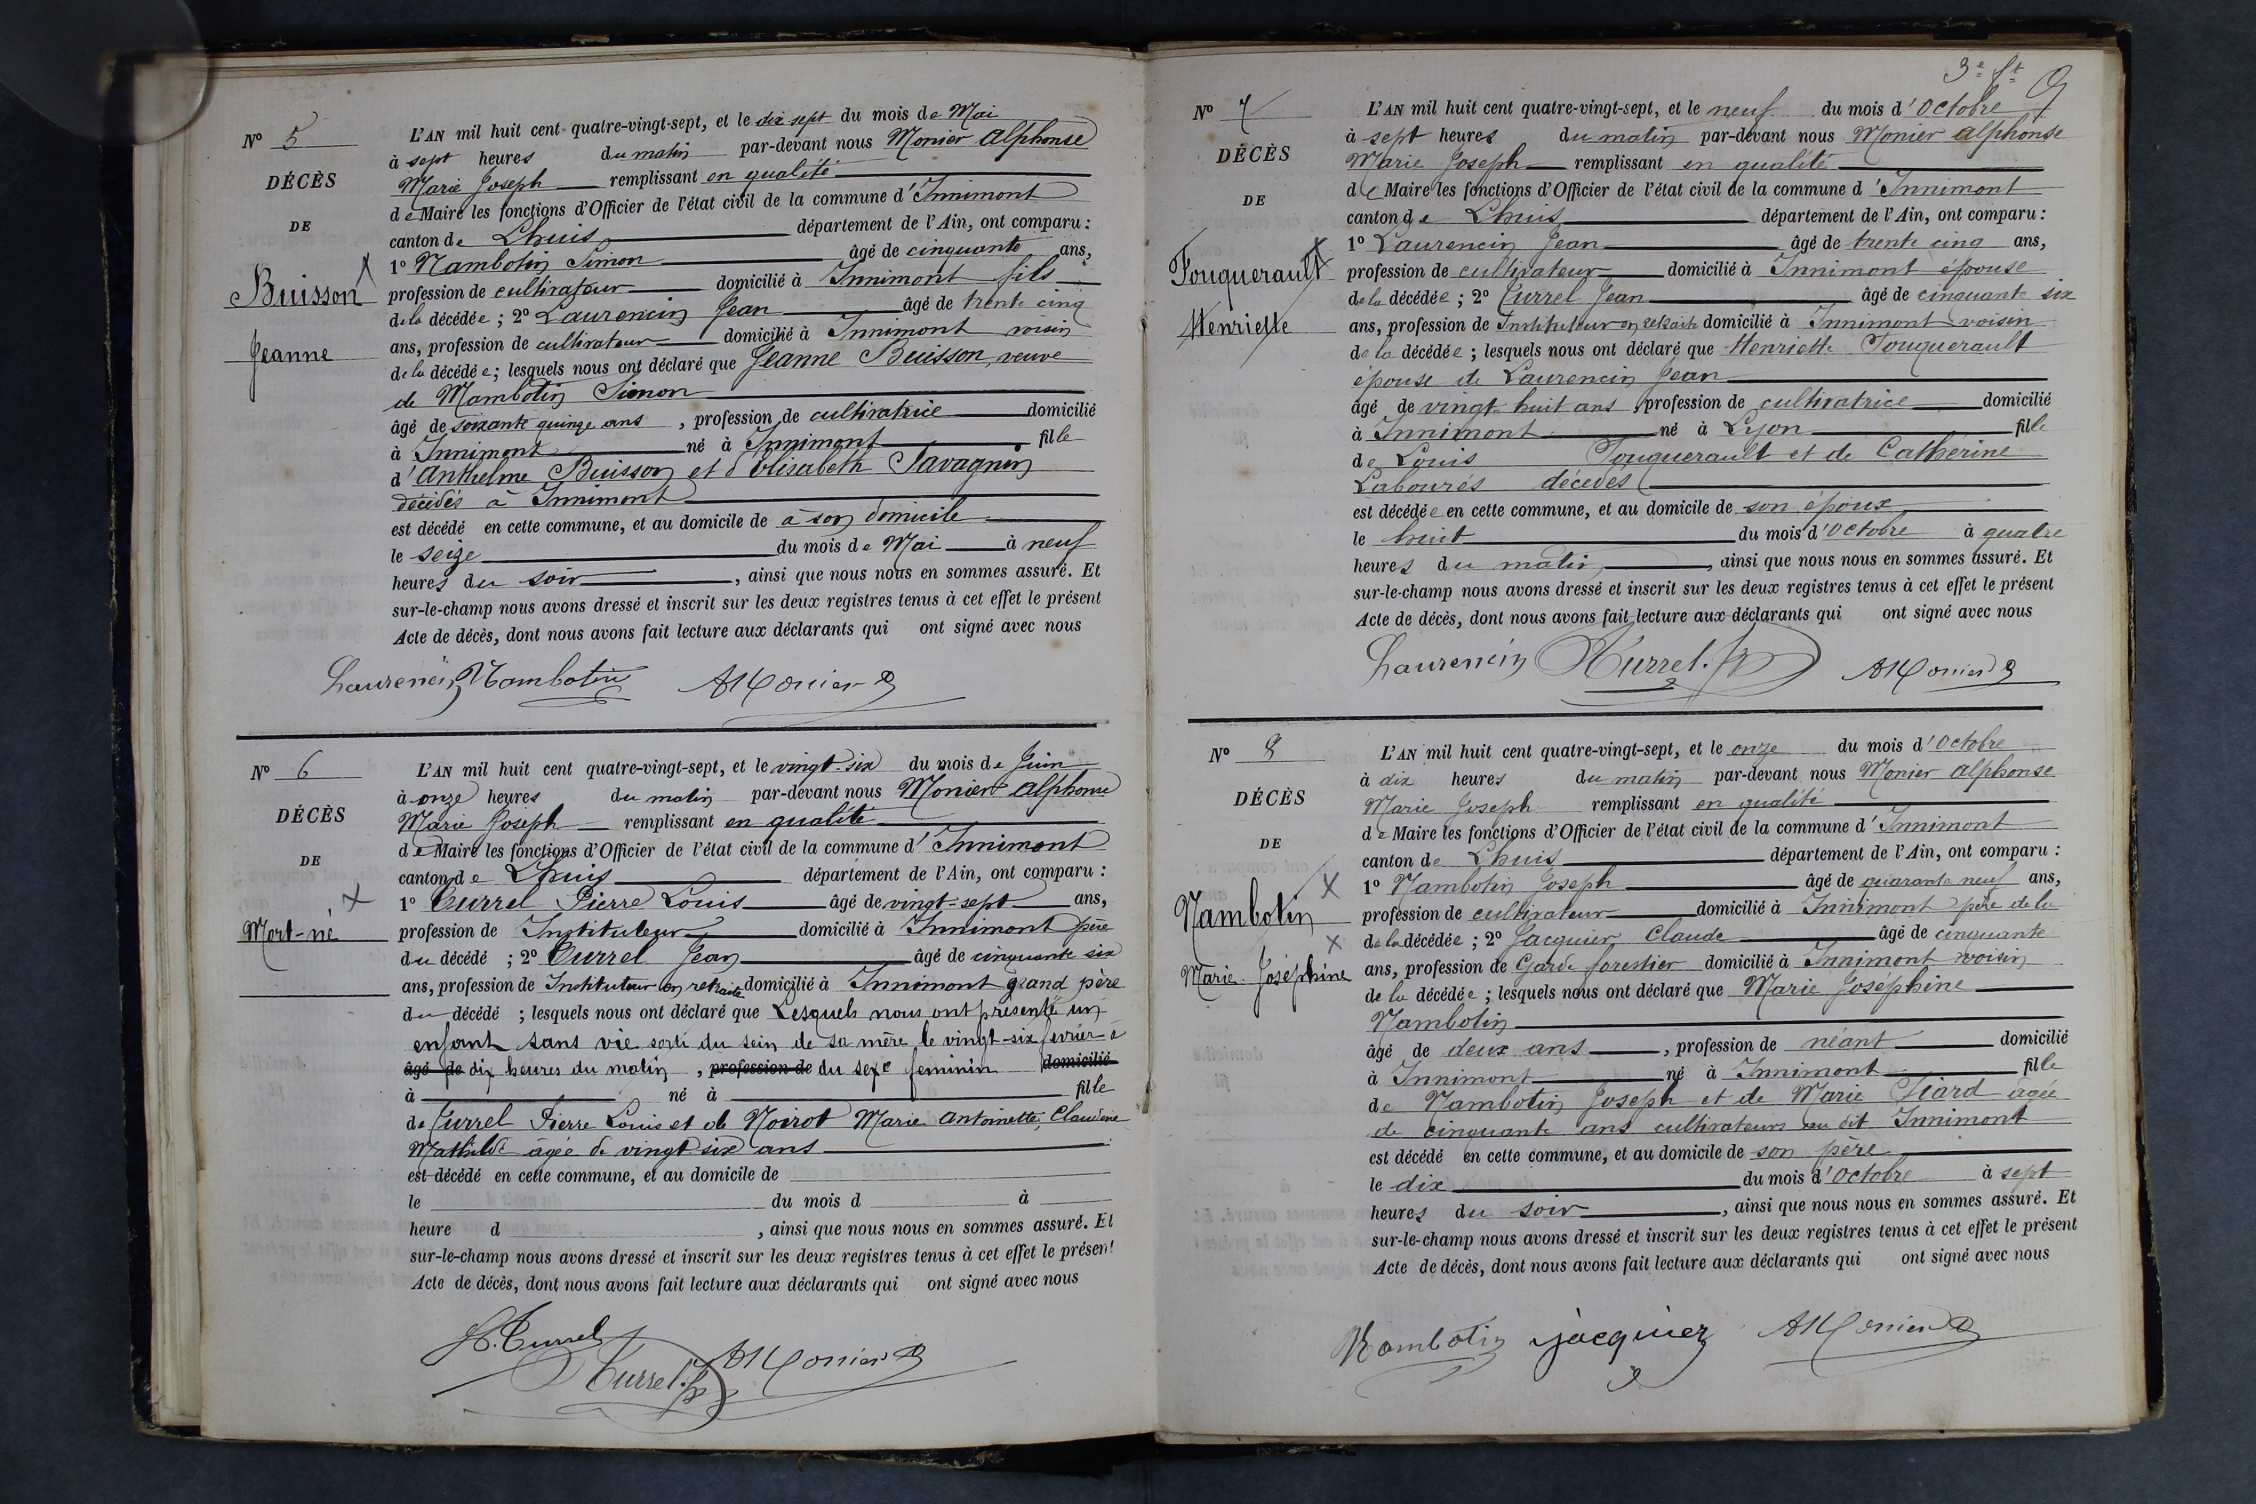 N° 5
DÉCÈS
DE
Buisson
Jeanne
L'AN mil huit cent quatre-vingt-sept, et le dix sept du mois de Mai
à sept heures du matin par-devant nous Monier Alphonse
Marie Joseph remplissant en qualité
de Maire les fonctions d'Officier de l'état civil de la commune d'Innimont
canton de Lhuis département de l'Ain, ont comparu :
1° Nambotin Simon âgé de cinquante ans,
profession de cultivateur domicilié à Innimont fils
de la décédée ; 2° Laurencin Jean âgé de trente cinq
ans, profession de cultivateur domicilié à Innimont voisin
de la décédée ; lesquels nous ont déclaré que Jeanne Buisson, veuve
de Nambotin Simon
âgé de soixante quinze ans , profession de cultivatrice domicilié
à Innimont né à Innimont fille
d'Anthelme Buisson et d'Elisabeth Savagnin
décédés à Innimont
est décédé en cette commune, et au domicile de à son domicile
le seize du mois de Mai à neuf
heures du soir , ainsi que nous nous en sommes assuré. Et
sur-le-champ nous avons dressé et inscrit sur les deux registres tenus à cet effet le présent
Acte de décès, dont nous avons fait lecture aux déclarants qui ont signé avec nous
Laurencin Nambotin AMonier
N° 6
DÉCÈS
DE
Mort-né
L'AN mil huit cent quatre-vingt-sept, et le vingt-six du mois de Juin
à onze heures du matin par-devant nous Monier Alphonse
Marie Joseph remplissant en qualité
de Maire les fonctions d'Officier de l'état civil de la commune d'Innimont
canton de Lhuis département de l'Ain, ont comparu :
1° Currel Pierre Louis âgé de vingt-sept ans,
profession de Instituteur domicilié à Innimont père
du décédé ; 2° Currel Jean âgé de cinquante six
ans, profession de Instituteur en retraite domicilié à Innimont grand père
du décédé ; lesquels nous ont déclaré que Lesquels nous ont présenté un
enfant sans vie sorti du sein de sa mère le vingt-six février à
âgé de dix heures du matin , profession de du sexe feminin domicilié
à né à fille
de Currel Pierre Louis et de Noirot Marie Antoinette, Claudine
Mathilde âgée de vingt six ans
est décédé en cette commune, et au domicile de
le du mois d à
heure d , ainsi que nous nous en sommes assuré. Et
sur-le-champ nous avons dressé et inscrit sur les deux registres tenus à cet effet le présent
Acte de décès, dont nous avons fait lecture aux déclarants qui ont signé avec nous
Currel
Currel AMonier
N° 7
DÉCÈS
DE
Fouquerault
Henriette
L'AN mil huit cent quatre-vingt-sept, et le neuf du mois d'Octobre
à sept heures du matin par-devant nous Monier Alphonse
Marie Joseph remplissant en qualité
de Maire les fonctions d'Officier de l'état civil de la commune d'Innimont
canton de Lhuis département de l'Ain, ont comparu :
1° Laurencin Jean âgé de trente cinq ans,
profession de cultivateur domicilié à Innimont épouse
de la décédée ; 2° Currel Jean âgé de cinquante six
ans, profession de Instituteur en retraite domicilié à Innimont voisin
de la décédée ; lesquels nous ont déclaré que Henriette Fouquerault
épouse de Laurencin Jean
âgé de vingt huit ans , profession de cultivatrice domicilié
à Innimont né à Lyon fille
de Louis Fouquerault et de Cathérine
Labourés décédés
est décédée en cette commune, et au domicile de son époux
le huit du mois d'Octobre à quatre
heures du matin , ainsi que nous nous en sommes assuré. Et
sur-le-champ nous avons dressé et inscrit sur les deux registres tenus à cet effet le présent
Acte de décès, dont nous avons fait lecture aux déclarants qui ont signé avec nous
Laurencin Currel AMonier
N° 8
DÉCÈS
DE
Nambotin
Marie-Joséphine
L'AN mil huit cent quatre-vingt-sept, et le onze du mois d'Octobre
à dix heures du matin par-devant nous Monier Alphonse
Marie Joseph remplissant en qualité
de Maire les fonctions d'Officier de l'état civil de la commune d'Innimont
canton de Lhuis département de l'Ain, ont comparu :
1° Nambotin Joseph âgé de quarante neuf ans,
profession de cultivateur domicilié à Innimont père de la
de la décédée ; 2° Jacquier Claude âgé de cinquante
ans, profession de Garde forestier domicilié à Innimont voisin
de la décédée ; lesquels nous ont déclaré que Marie Joséphine
Nambotin
âgé de deux ans , profession de néant domicilié
à Innimont né à Innimont fille
de Nambotin Joseph et de Marie Siard âgée
de cinquante ans cultivateurs au dit Innimont
est décédé en cette commune, et au domicile de son père
le dix du mois d'Octobre à sept
heures du soir , ainsi que nous nous en sommes assuré. Et
sur-le-champ nous avons dressé et inscrit sur les deux registres tenus à cet effet le présent
Acte de décès, dont nous avons fait lecture aux déclarants qui ont signé avec nous
Nambotin jacquier AMonier